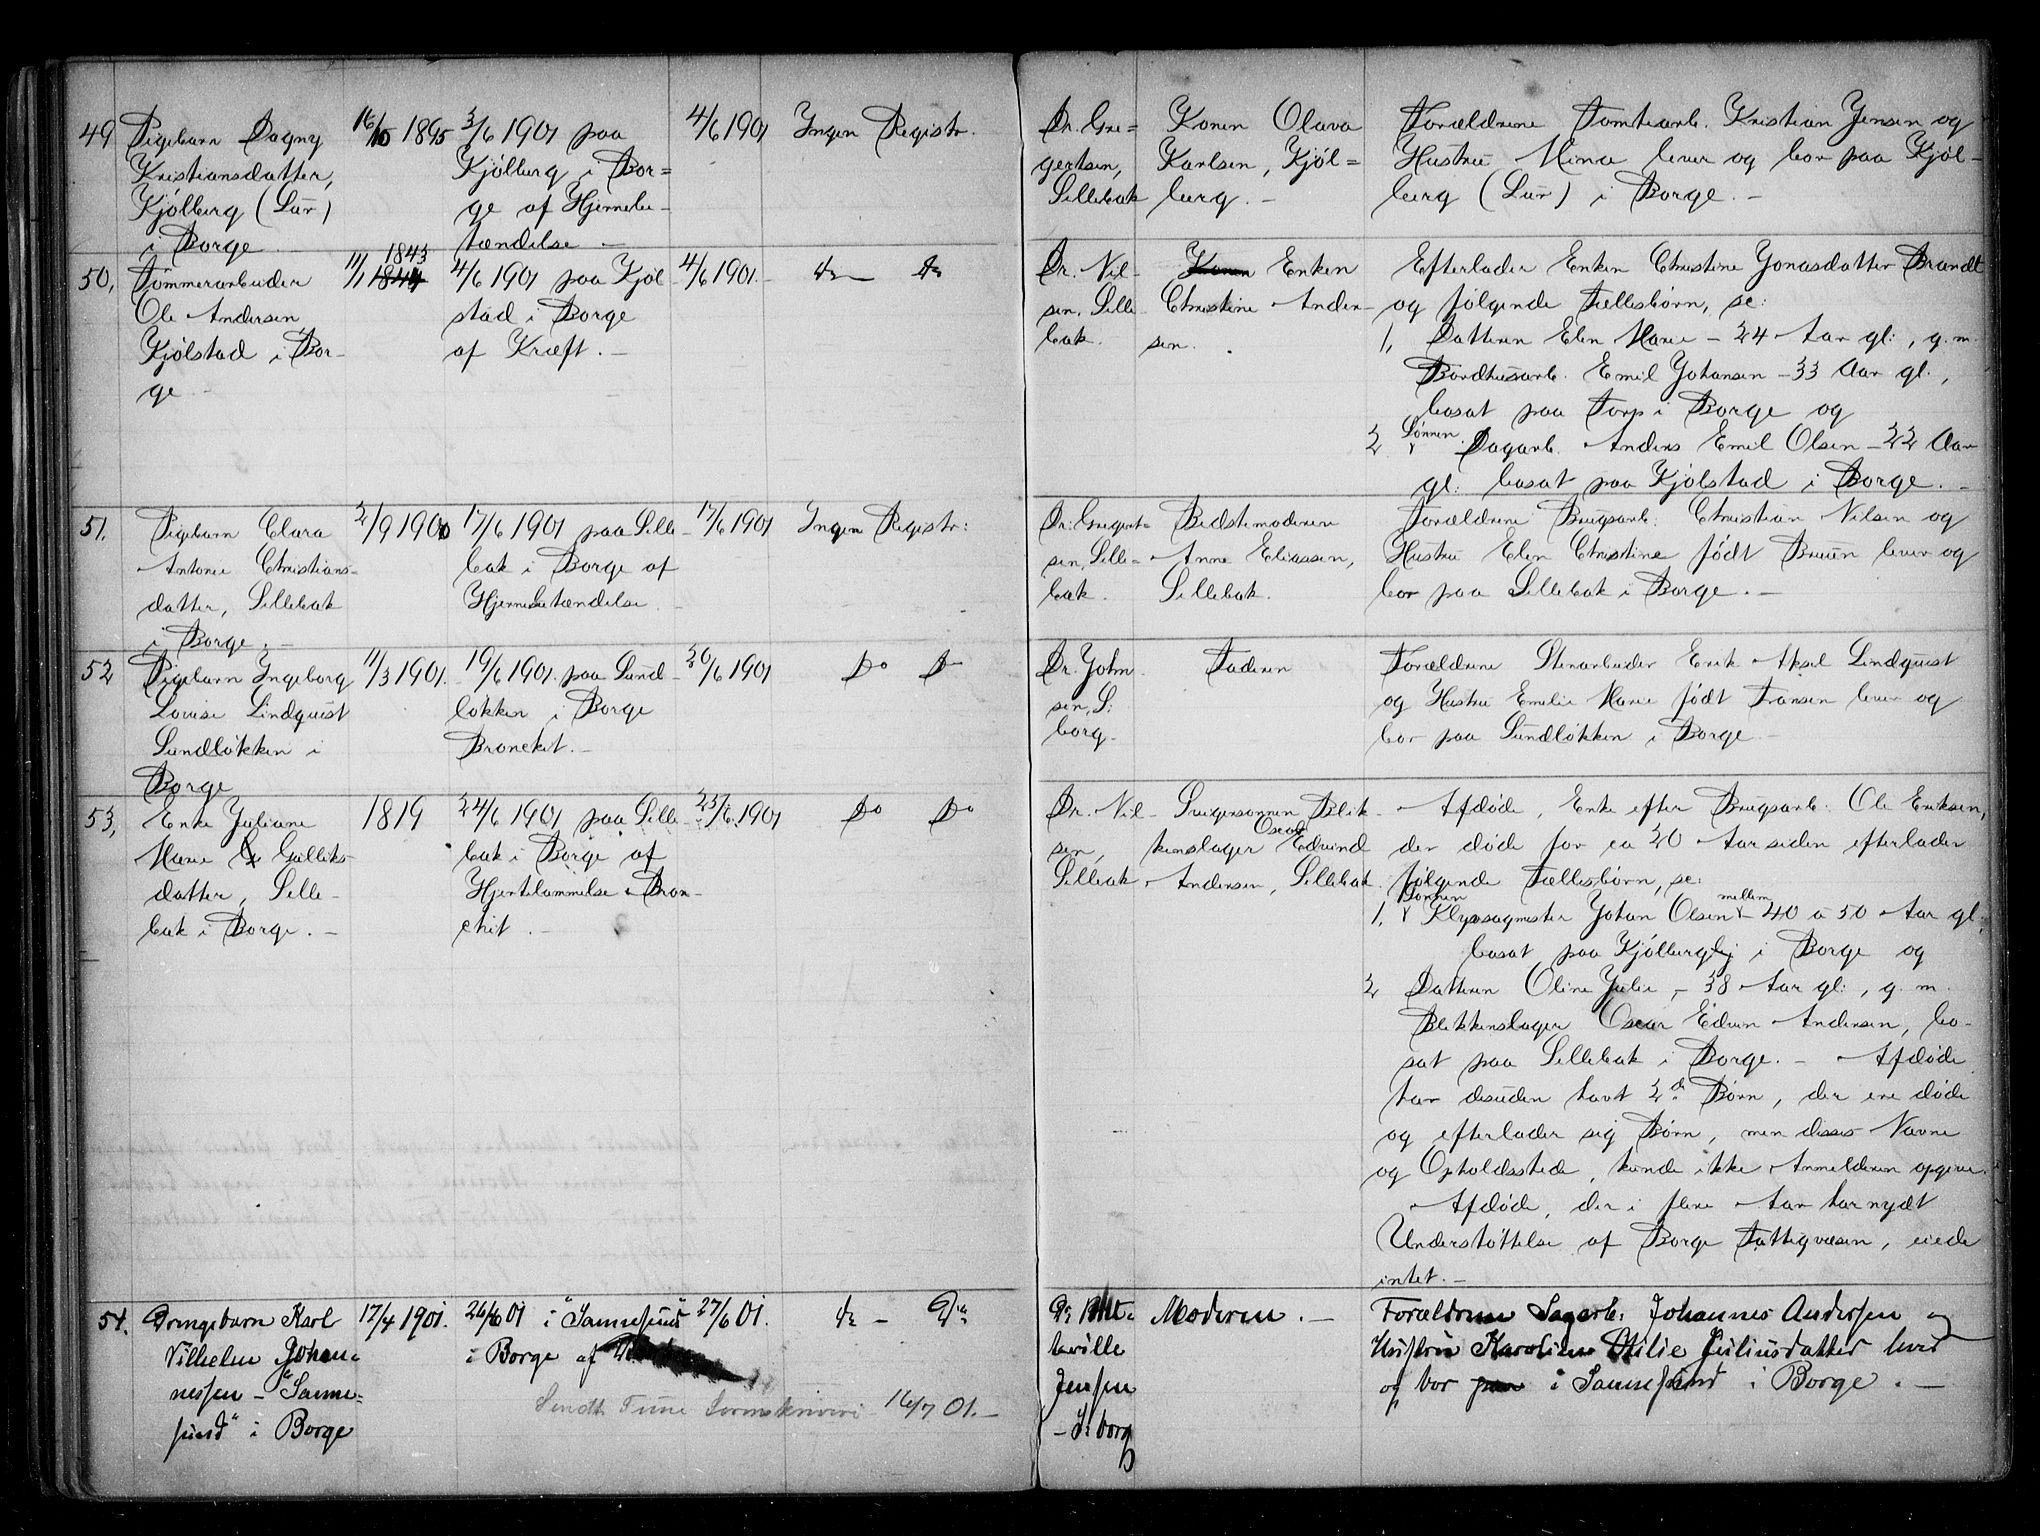 49 Pigebarn Dagny
Kristiansdatter,
Kjølberg (Lur)
i Borge. —
16/10 1895
3/6 1901 paa
Kjølberg i Bor=
ge af Hjernebe-
tændelse —
4/6 1901
Ingen Registr.
Dr. Gre=
gertsen,
Sellebak
Konen Olava
Karlsen, Kjøl=
berg. —
Forældrene Tomtearb. Kristian Jensen og
Hustru Mina lever og bor paa Kjøl-
berg (Lur) i Borge. —
50, Tømmerarbeider
Ole Andersen
Kjølstad i Bor-
ge. —
1843
11/1 1844
4/6 1901 paa Kjøl
stad i Borge
af Kræft. —
4/6 1901. —
do — do
Dr. Nil-
sen, Selle
bak.
Konen Enken
Christine Ander-
sen.
Efterlader Enken Christine Jonasdatter Brandt
og følgende Fællesbørn, se:
1, Datteren Elen Marie — 24 Aar gl:, g. m.
Bordhusarb. Emil Johansen — 33 Aar gl.,
bosat paa Torp i Borge og
Sønnen
2. Dagarb. Anders Emil Olsen — 22 Aar
gl: bosat paa Kjølstad i Borge. —
51. Pigebarn Clara
Antonie Christians=
datter, Sellebak
i Borge. —
2/9 1900
17/6 1901 paa Selle
bak i Borge af
Hjernebetændelse. —
17/6 1901
Ingen Registr:
Dr: Gregert=
sen, Selle=
bak.
Bedstemoderen
Anne Eliassen,
Sellebak.
Forældrene Brugsarb: Christian Nilsen og
Hustru Elen Christine født Bruun lever og
bor paa Sellebak i Borge. —
52 Pigebarn Ingeborg
Lovise Lindquist
Sundløkken i
Borge
11/3 1901.
19/6 1901. paa Sund-
løkken i Borge
Bronekit. —
20/6 1901
Do Do
Dr. John
sen, S:
borg.
Faderen
Forældrene Stenarbeider Erik Aksel Lindquist
og Hustru Emelie Marie født Fransen lever og
bor paa Sundløkken i Borge. —
53, Enke Juliane
Marie Gulliks-
datter, Selle-
bak i Borge. —
1819
24/6 1901 paa Selle-
bak i Borge af
Hjertelammelse & Bron-
chit. —
25/6. 1901
Do Do
Dr. Nil-
sen,
Sellebak
Svigersønnen Blik-
Oscar
kenslager Edvind
Andersen, Sellebak.
Afdøde, Enke efter Brugsarb: Ole Eriksen,
der døde for ca 20 Aar siden efterlader
følgende Fællesbørn, se:
Sønnen mellem
1, Klypsagmester Johan Olsen — 40 a 50 Aar gl:
bosat paa Kjølberglej i Borge og
2 Datteren Oline Julie, — 38 Aar gl:, g. m.
Blekkenslager Oscar Edvin Andersen, bo-
sat paa Sellebak i Borge. — Afdøde
har desuden havt 2de Børn, der ere døde
og efterlader sig Børn, men disses Navne
og Opholdssted, kunde ikke Anmelderen opgive.
Afdøde, der i flere Aar har nydt
Understøttelse af Borge Fattigvæsen, eiede
intet. —
54. Drengebarn Karl
Vilhelm Johan-
nessen — "Sanne-
sund" i Borge
17/4 1901.
26/6 01 i "Sannesund"
i Borge af
27/6 01.
do — do
Sendt Tune Sorenskriveri 16/7 01. —
Jensen
— S: borg
Moderen. —
Forældrene Sagarb: Johannes Andersen og
Hustru Karoline Otilie Juliusdatter lever
og bor paa i Sannesund i Borge. —